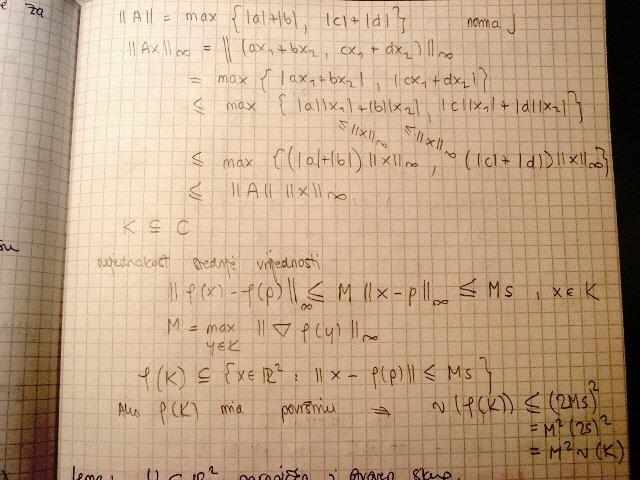 ‖A‖ = max {|a|+|b|, |c|+|d|} norma J
‖Ax‖∞ = ‖(ax₁+bx₂, cx₁+dx₂)‖∞
= max {|ax₁+bx₂|, |cx₁+dx₂|}
≤ max {|a||x₁|+|b||x₂|, |c||x₁|+|d||x₂|}
≤‖x‖∞ ≤‖x‖∞
≤ max {(|a|+|b|)‖x‖∞, (|c|+|d|)‖x‖∞}
≤ ‖A‖ ‖x‖∞
K ⊆ C
nejednakost srednje vrijednosti
‖φ(x)-φ(p)‖∞ ≤ M ‖x-p‖∞ ≤ Ms, x∈K
M = max ‖∇φ(y)‖∞
y∈K
φ(K) ⊆ {x∈ℝ² : ‖x-φ(p)‖ ≤ Ms}
Ako φ(K) ima površinu ⇒ ν(φ(K)) ≤ (2Ms)²
= M²(2s)²
= M² ν(K)